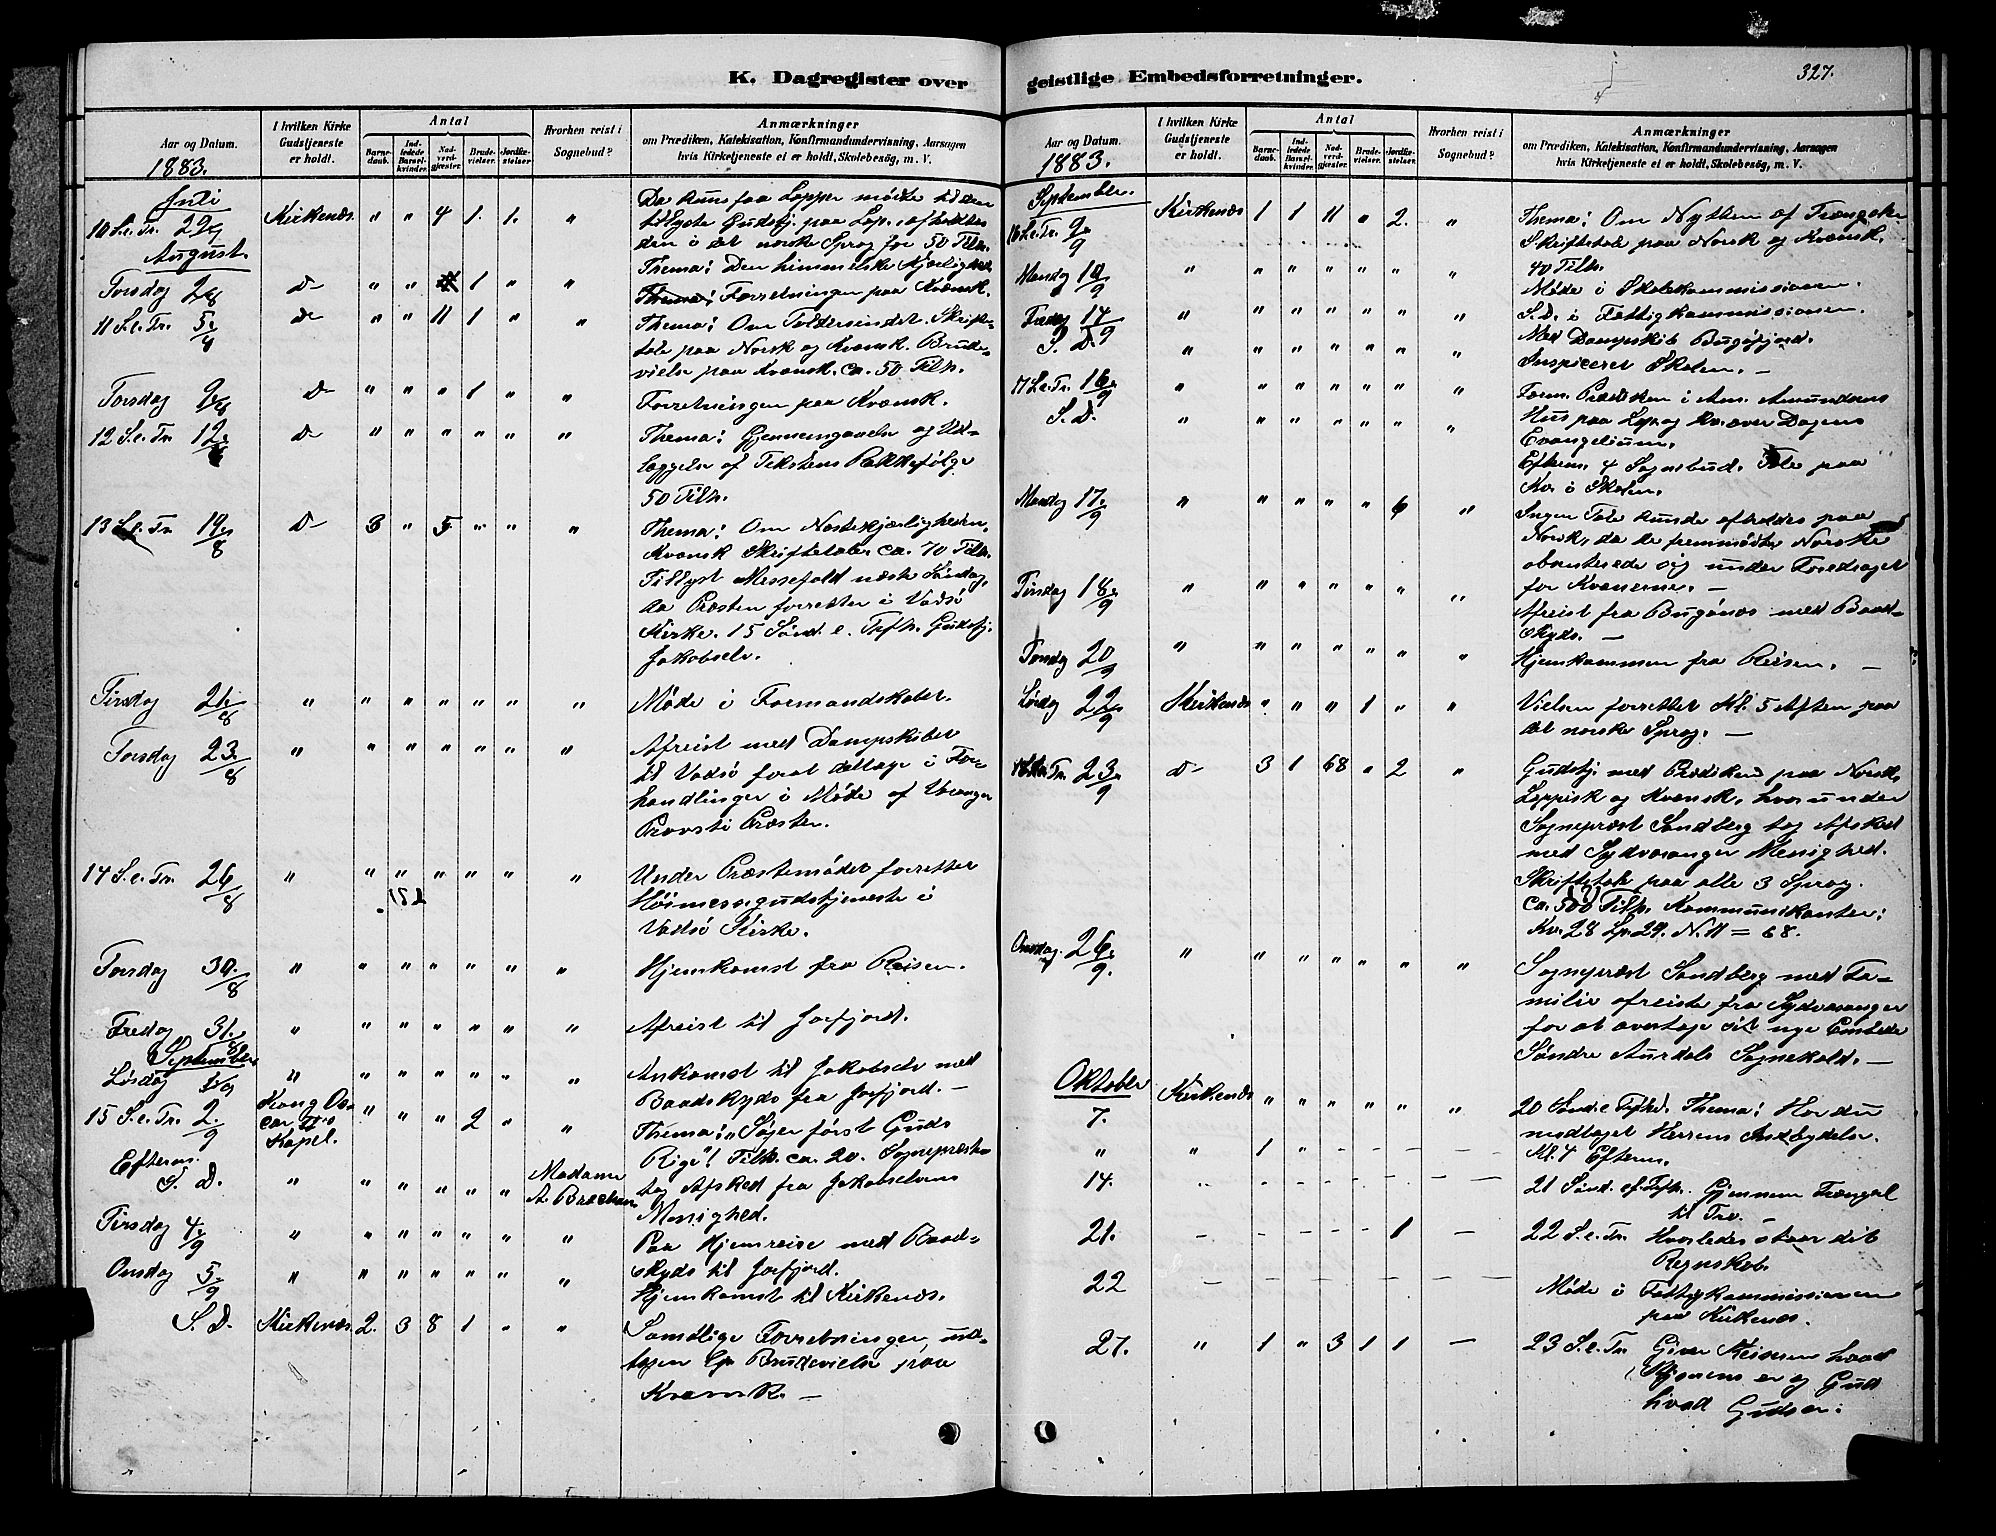 K. Dagregister over
Aar og Datum.
1883.
I hvilken Kirke Gudstjeneste er holdt.
Antal
Barnedaab.
Indledede Barselkvinder.
Nadverdgjester.
Brudevielser.
Jordfæstelser.
Hvorhen reist i Sognebud?
Anmærkninger
om Prædiken, Katekisation, Konfirmandundervisning, Aarsagen
hvis Kirketjeneste ei er holdt, Skolebesøg, m. V.
Juli
10 S. e. Tr. 29/7 Kirkenæs " " 4 1. 1. " Da kun faa Lapper mødte til den
tillyste Gudstj. paa Lap. afholdtes
den i det norske Sprog for 50 Tilh.
August.
Thema: Den himmelske Kjærlighed
Torsdag 2/8 d- " " 1 " " Forretningen paa Kvænsk.
11 S. e. Tr. 5/ d- " " 11 1 " " Thema: Om Toldersindet. Skrifte-
tale paa Norsk og Kvænsk. Brude-
vielse paa Kvænsk. ca. 50 Tilh.
Torsdag 9/8 d- " " " 1 " " Forretningen paa Kvænsk.
12 S. e. Tr. 12/ d- " " " " " " Thema: Gjennemgaaelse og Ud-
læggelse af Tekstens Rækkefølge
50 Tilh.
13 S. e. Tr. 19/8 d- 3 " 5 " " " Thema: Om Næstekjærligheden.
Kvænsk Skriftetale. ca. 70 Tilh.
Tillyst Messefald næste Søndag,
da Præsten forretter i Vadsø
Kirke. 15 Sønd. e. Trefh. Gudstj.
Jakobselv.
Tirsdag 21/8 " " " " " " " Møde i Formandskabet.
Torsdag 23/8 " " " " " " " Afreist med Dampskibet
til Vadsø forat deltage i For-
handlinger i Møde af Varanger
Provsti Præster.
14 S. e. Tr. 26/8 " " " " " " " Under Præstemødet forrettet
Høimessegudstjeneste i
Vadsø Kirke.
Torsdag 30/8 " " " " " " " Hjemkomst fra Reisen.
Fredag 31/8 " " " " " " " Afreist til Jarfjord.
September
Lørdag 1/9 " " " " " " " Ankomst til Jakobselv med
Baadskyds fra Jarfjord. —
15 S. e. Tr. 2/9 Kong Os-
car II's
Kapel. " " " 2 " " Thema: "Søger først Guds
Rige"! Tilh. ca. 20. Sognepræsten
Efterm.
S. D. " " " " " " Madame
A. tog Afsked fra Jakobselvens
Menighed.
Tirsdag 4/9 " " " " " " " Paa Hjemreise med Baad-
skyds til Jarfjord.
Onsdag 5/9 " " " " " " " Hjemkomst til Kirkenæs.
S. D. Kirkenæs. 2. 3 8 1 " " Samtlige Forretninger und-
tagen Brudevielse paa
Kvænsk. —
geistlige Embedsforretninger.
327.
Aar og Datum.
1883.
I hvilken Kirke Gudstjeneste er holdt.
Antal
Barnedaab.
Indledede Barselkvinder.
Nadverdgjester.
Brudevielser.
Jordfæstelser.
Hvorhen reist i Sognebud?
Anmærkninger
om Prædiken, Katekisation, Konfirmandundervisning, Aarsagen
hvis Kirketjeneste ei er holdt, Skolebesøg, m. V.
September.
16 S. e. Tr. 9/9 Kirkenæs 1 1 11 " 2. " Thema: Om Nytten af Trængsler
Skriftetale paa Norsk og Kvænsk.
40 Tilh.
Mandag 10/9 " " " " " " " Møde i Skolekommissionen.
S. D. i Fattigkommissionen.
Fredag 14/9 " " " " " " " Med Dampskib Bugøfjord.
S. D. " " " " " " " Inspiceret Skolen. —
17 S. e. Tr. 16/9 " " " " " " " Form. Prædiken i Amundsens
Hus paa Lap. og Kv. over Dagens
Evangelium.
S. D. " " " " " " " Efterm. 4 Sognebud. Tale paa
Kv. i Skolen.
Mandag 17/9 " " " " " 6 " Ingen Tale kunde afholdes paa
Norsk, da de fremmødte Norske
absenterede sig under Foredraget
for Kvænerne. —
Tirsdag 18/9 " " " " " " " Afreist fra Bugønæs med Baad-
skyds. —
Torsdag 20/9 " " " " " " " Hjemkommen fra Reisen. —
Lørdag 22/9 Kirkenæs " " " 1 " " Vielsen forrettet Kl. 5 Aften paa
det norske Sprog. —
18 S. e. Tr. 23/9 d- 3 1 68 " 2 " Gudstj. med Prædiken paa Norsk,
Lappisk og Kvænsk, hvorunder
Sognepræst Sandberg tog Afsked
med Sydvaranger Menighed.
Skriftetale paa alle 3 Sprog.
ca. 500 Tilh. Kommunikanter:
Kv. 28 Lp. 29. N. 11 = 68.
Onsdag 26/9. " " " " " " " Sognepræst Sandberg med Fa-
milie afreiste fra Sydvaranger
for at overtage sit nye Embede
Søndre Aurdals Sognekald. —
Oktober
7. Kirkenæs " " " " " " 20 Sønd. e Trfh. Thema: Har du
modtaget Herrens Indbydelse.
" " 1 " - - - - Kl. 4 Efterm.
14. - - - - - - 21 Sønd. ef. Trfh. Gjennem Trængsel
til Tro. —
21. - - - - - 1 - 22 S. e. Tr. Hvorledes staar dit
Regnskab.
22 - - - - - - Møde i Fattigkommissionen
paa Kirkenæs.
27. " 1 " 3 1 1 - 23 S. e. Tr. Giver Keiseren hvad
Keiserens er og Gud
hvad Guds er.